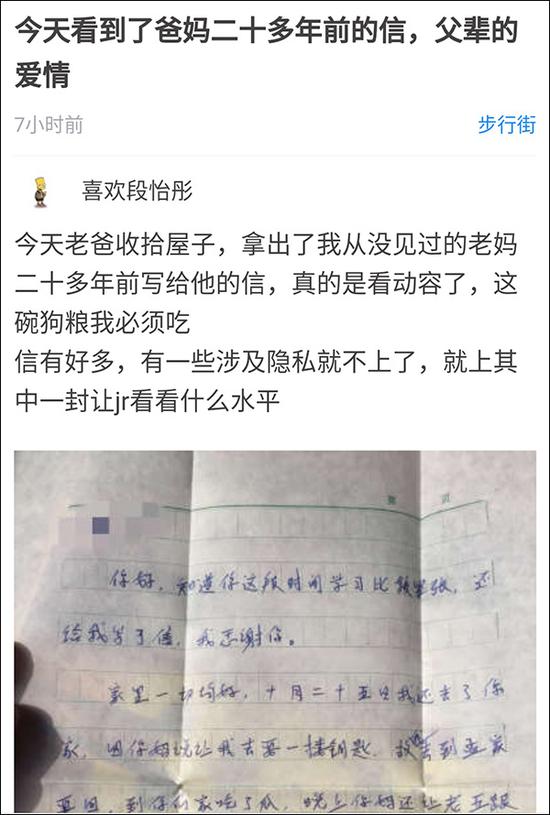 今天看到了爸妈二十多年前的信，父辈的
爱情
7小时前
步行街
喜欢段怡彤
今天老爸收拾屋子，拿出了我从没见过的老妈
二十多年前写给他的信，真的是看动容了，这
碗狗粮我必须吃
信有好多，有一些涉及隐私就不上了，就上其
中一封让jr看看什么水平
第 页
你好，知道你这段时间学习比较紧张，还
给我写了信，我感谢你。
家里一切均好，十月二十五日我还去了你
家，因你妈说让我去要一搂钥匙，
到你们家吃了瓜，晚上你妈还让老五跟